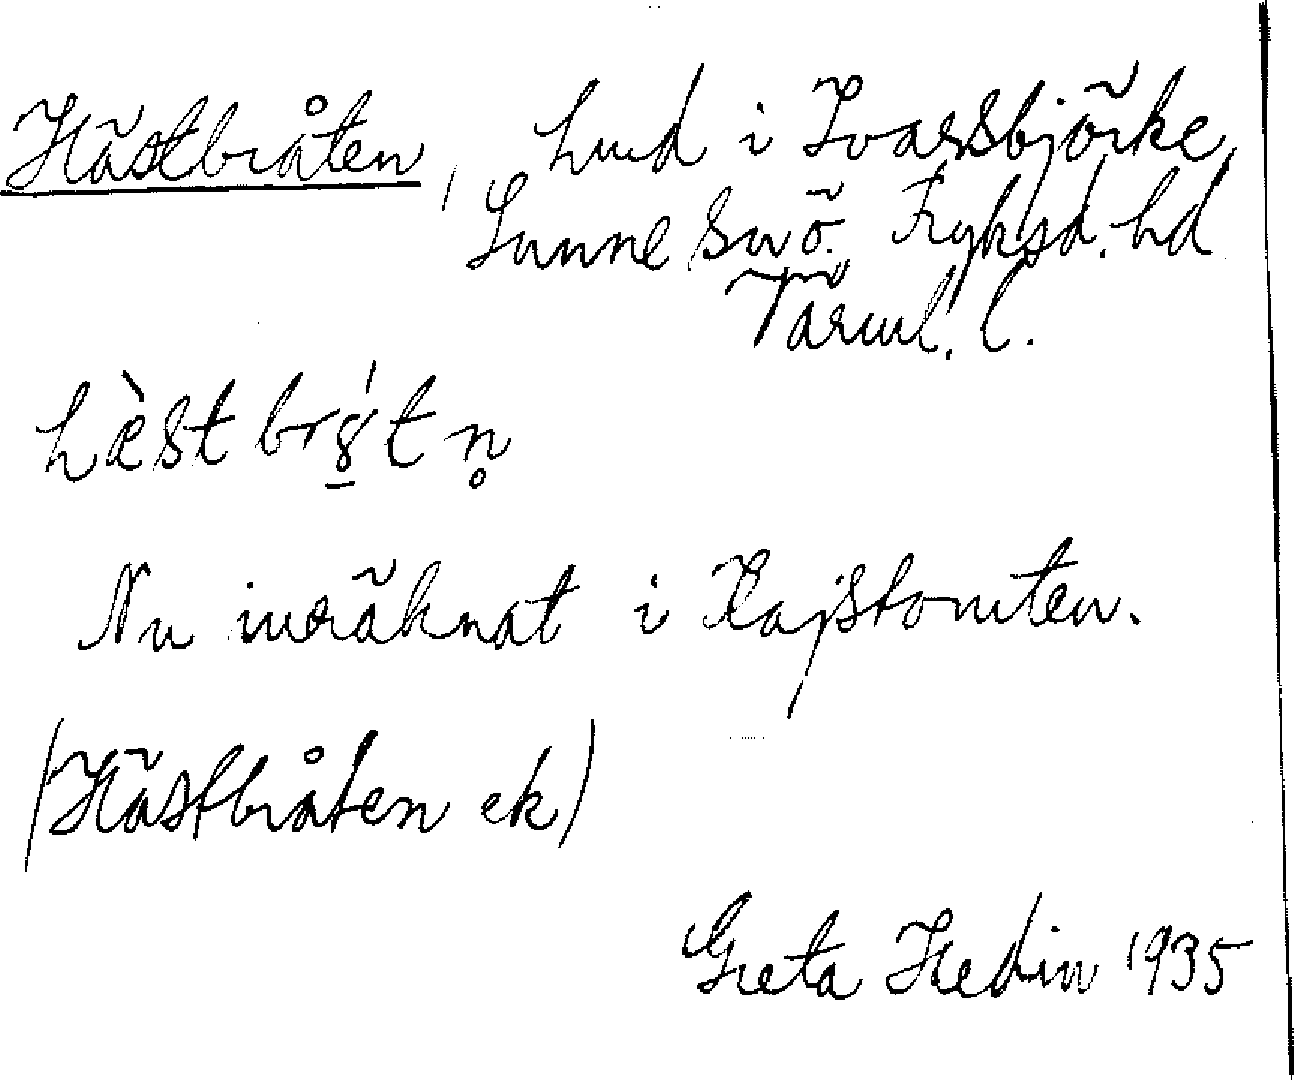 Hästbråten, hmd i Ivarsbjörke,
Sunne sn ö. Fryksd. hd
Värml. l.
hæ̀stbrn̥
Nu inräknat i Kajstomten.
(Hästbråten ek)
Greta Hedin 1935